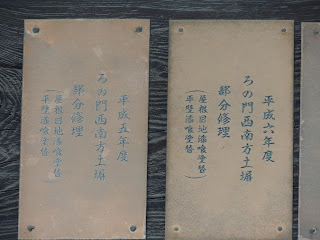 平成五年度
ろの門西南方土塀
部分修理
(屋根目地漆喰塗替
平壁漆喰塗替)
平成六年度
ろの門西南方土塀
部分修理
(屋根目地漆喰塗替
平壁漆喰塗替)